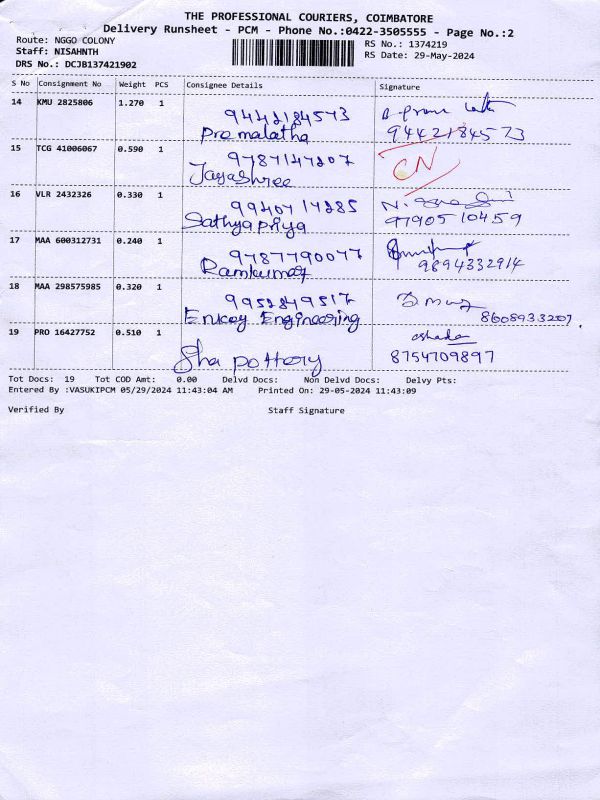 THE PROFESSIONAL COURIERS, COIMBATORE
Delivery Runsheet - PCM - Phone No.:0422-3505555 - Page No.:2
Route: NGGO COLONY
Staff: NISAHNTH
DRS No.: DCJB137421902
RS No.: 1374219
RS Date: 29-May-2024
S No Consignment No Weight PCS Consignee Details Signature
14 KMU 2825806 1.270 1
9442184573
Premalatha
9442184573
15 TCG 41006067 0.590 1
9787147207
Jayashree
CN
16 VLR 2432326 0.330 1
9940714285
Sathyapriya
9790510459
17 MAA 600312731 0.240 1
9787790077
Ramkumar
9894332914
18 MAA 298575985 0.320 1
9952849517
Enkay Engineering
8608933207
19 PRO 16427752 0.510 1
Sha pottery
8754709897
Tot Docs: 19 Tot COD Amt: 0.00 Delvd Docs: Non Delvd Docs: Delvy Pts:
Entered By :VASUKIPCM 05/29/2024 11:43:04 AM Printed On: 29-05-2024 11:43:09
Verified By Staff Signature